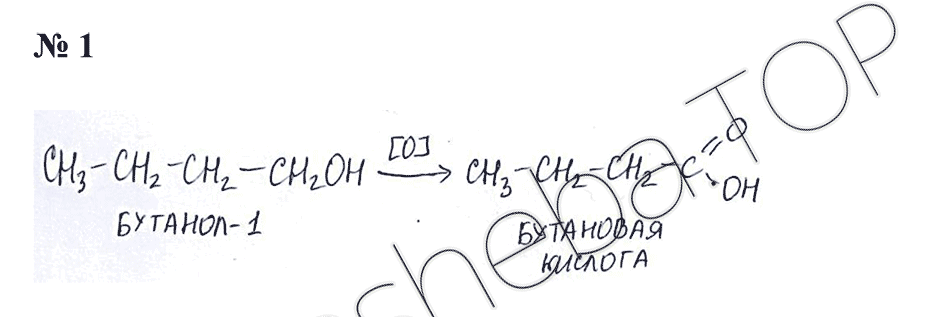 № 1
CH₃-CH₂-CH₂-CH₂OH [O]→ CH₃-CH₂-CH₂-C=O
OH
БУТАНОЛ-1
БУТАНОВАЯ
КИСЛОТА
shebaTOP